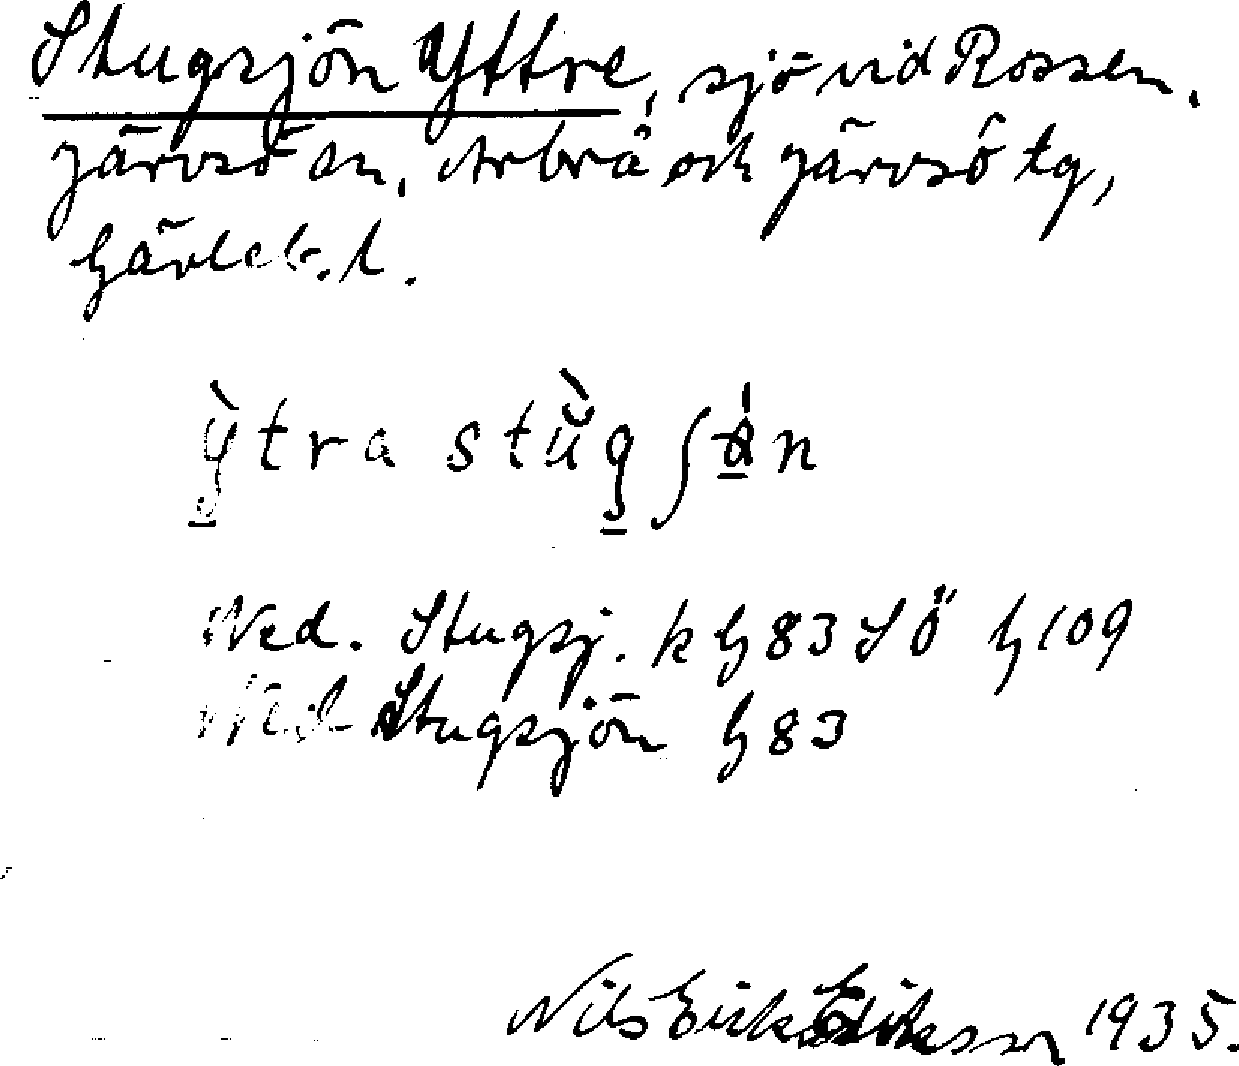 Stugsjön Yttre, sjö vid Rossen,
Järvsö sn, Arbrå och Järvsö tg,
Gävleb. l.
Ned. Stugsj. k G 83 SÖ G 109
Ned Stugsjön G 83
Nils Erik Eriksson 1935.